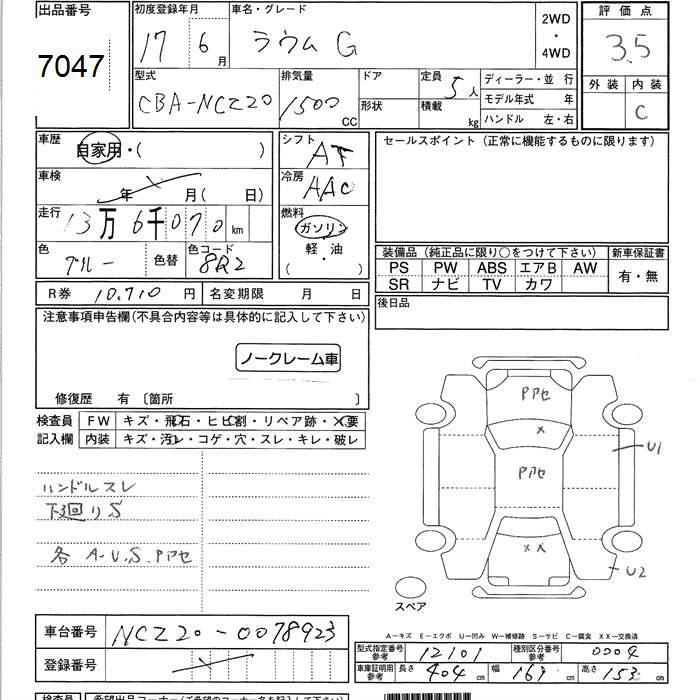 出品番号
7047
初度登録年月
17 6月
車名・グレード
ラウム G
2WD
・
4WD
評価点
3.5
外装 内装
C
型式
CBA-NCZ20
排気量
1500 CC
ドア
形状
定員 5人
積載 kg
ディーラー・並 行
モデル年式 年
ハンドル 左・右
車歴 自家用・( )
車検 年 月( 日)
走行 13万6千070 km
色 ブルー 色替
色コード 8R2
シフト AT
冷房 AAC
燃料 ガソリン
軽・油
( ・ )
R券 10,710 円 名変期限 月 日
セールスポイント (正常に機能するものに限ります)
装備品 (純正品に限り○をつけて下さい) 新車保証書
PS PW ABS エアB AW 有・無
SR ナビ TV カワ
後日品
注意事項申告欄(不具合内容等は具体的に記入して下さい)
ノークレーム車
修復歴 有 〔箇所 〕
検査員 FW キズ・飛石・ヒビ割・リペア跡・X要
記入欄 内装 キズ・汚レ・コゲ・穴・スレ・キレ・破レ
ハンドルスレ
下廻りS
各 A.U.S.Pアセ
Pアセ
X
Pアセ
XX
U1
U2
スペア
A-キズ E-エクボ U-凹み W-補修跡 S-サビ C-腐食 XX-交換済
車台番号 NCZ20-0078923
登録番号
型式指定番号 参考 12101 種別区分番号 参考 0004
車庫証明用 参考 長さ 404cm 幅 169cm 高さ 153cm
検査員 希望出品コーナー(ご希望のコーナー名を記入下さい)